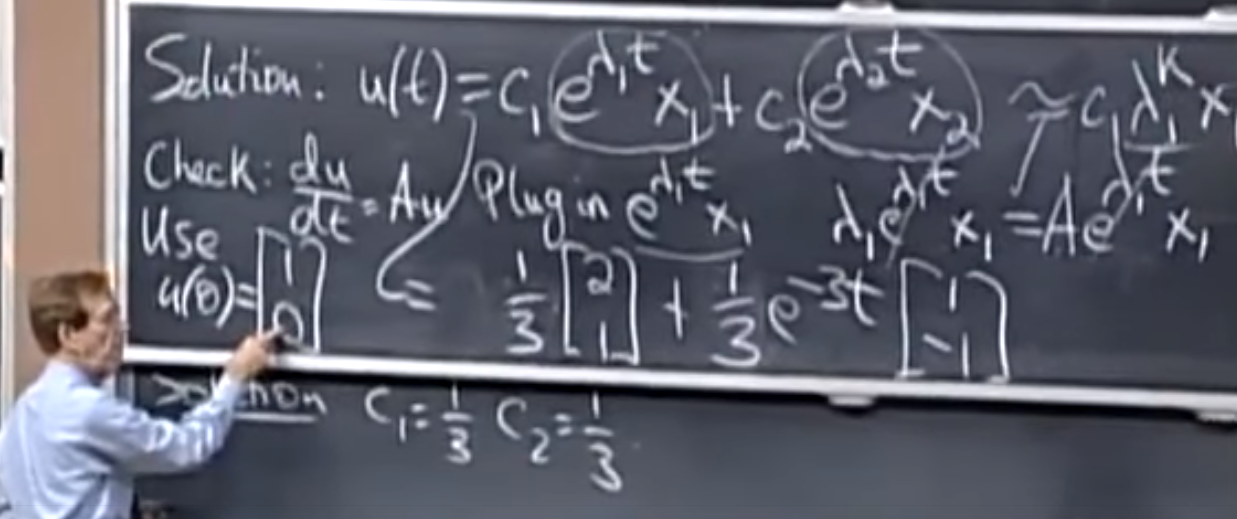 Solution: u(t) = c₁ e^{λ₁t} x₁ + c₂ e^{λ₂t} x₂ ~ c₁ λ₁^k x
Check: du/dt = Au Plug in e^{λ₁t} x₁ λ₁ e^{λ₁t} x₁ = A e^{λ₁t} x₁
Use
u(0) = [1 0] = 1/3 [2 1] + 1/3 e^{-3t} [1 -1]
solution c₁ = 1/3 c₂ = 1/3